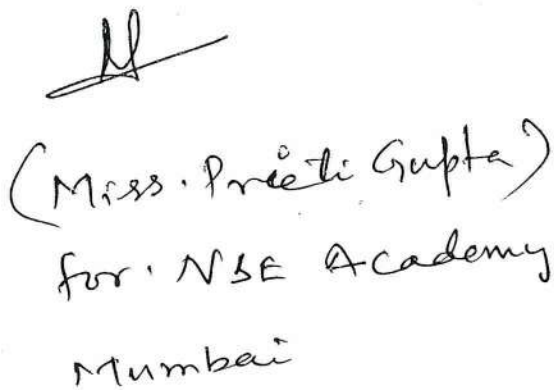 (Miss. Prieti Gupta)
for. NSE Academy
Mumbai